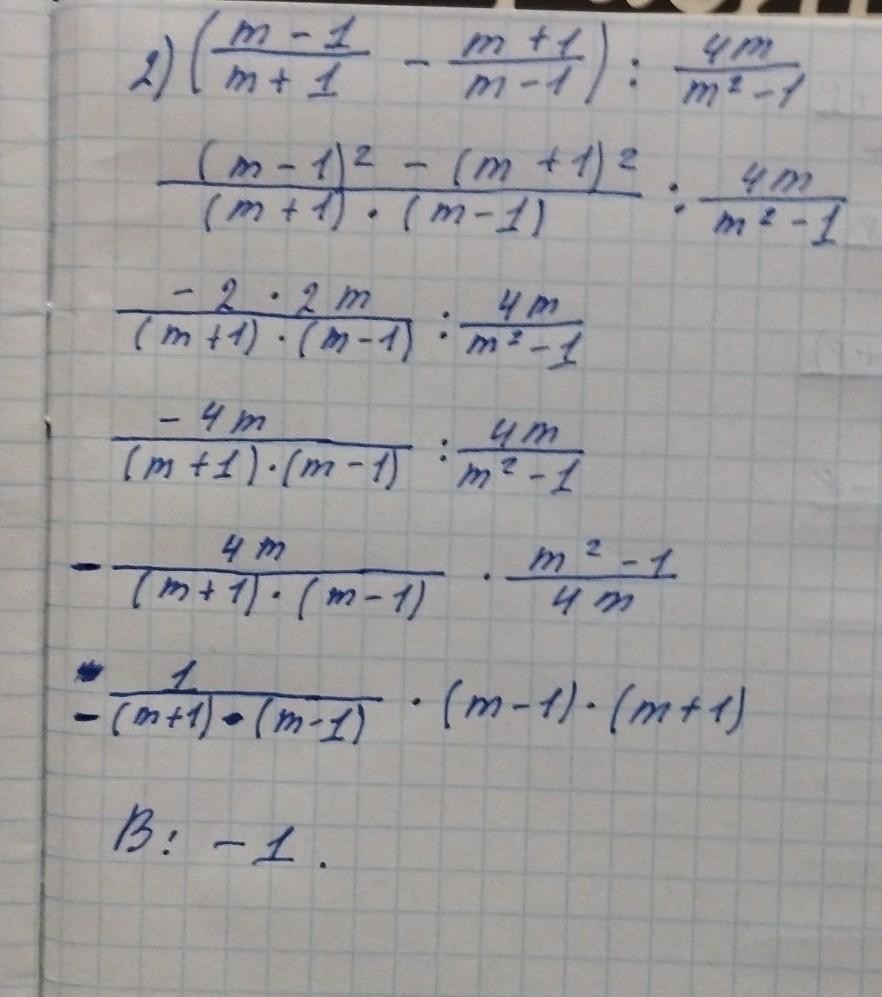 2) ( (m - 1)/(m + 1) - (m + 1)/(m - 1) ) : 4m/(m² - 1)
((m - 1)² - (m + 1)²)/((m + 1) · (m - 1)) : 4m/(m² - 1)
(- 2 · 2m)/((m + 1) · (m - 1)) : 4m/(m² - 1)
(- 4m)/((m + 1) · (m - 1)) : 4m/(m² - 1)
- 4m/((m + 1) · (m - 1)) · (m² - 1)/(4m)
- 1/((m + 1) · (m - 1)) · (m - 1) · (m + 1)
В: - 1.